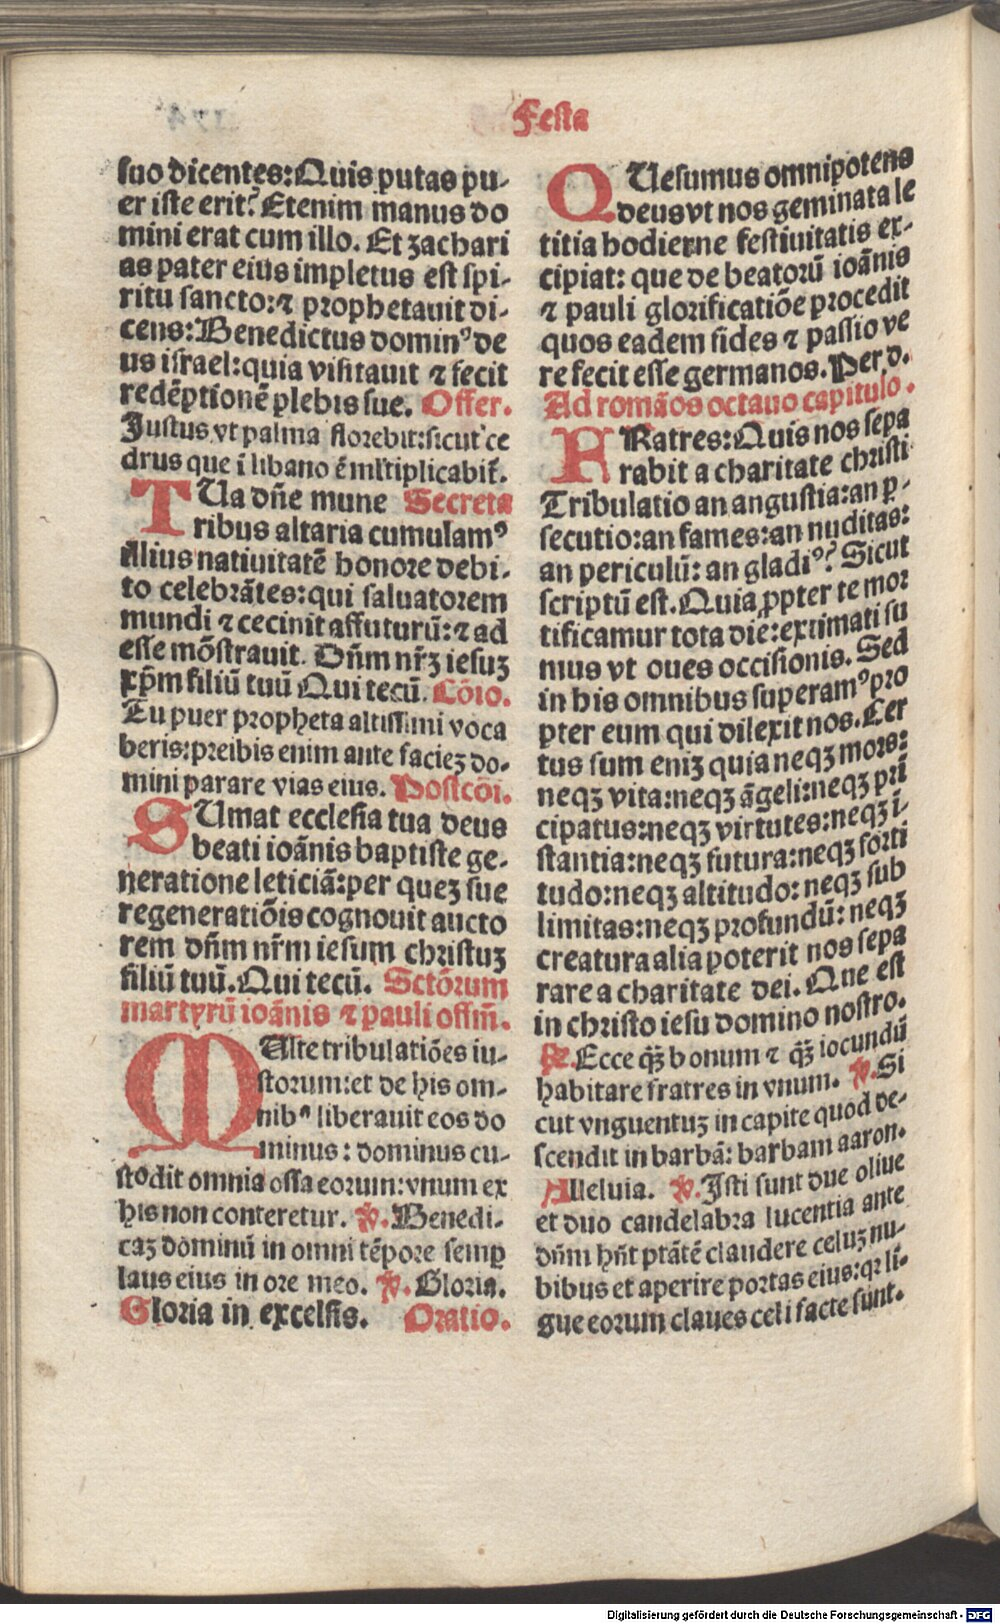 Festa
suo dicentes: Quis putas pu-
er iste erit? Etenim manus do
mini erat cum illo. Et zachari
as pater eius impletus est spi-
ritu sancto: ⁊ prophetauit di-
cens: Benedictus dominꝰ de
us israel: quia visitauit ⁊ fecit
redēptionē plebis sue. Offer.
Justus vt palma florebit: sicut ce
drus que ī libano ē mľtiplicabit̄.
TUa dn̄e mune Secreta
ribus altaria cumulamꝰ
illius natiuitatē honore debi-
to celebrātes: qui saluatorem
mundi ⁊ cecinit affuturū: ⁊ ad
esse mōstrauit. Dn̄m nr̄ꝫ iesuꝫ
xp̄m filiū tuū Qui tecū. Cōio.
Tu puer propheta altissimi voca
beris: preibis enim ante facieꝫ do-
mini parare vias eius. Postcōi.
SUmat ecclesia tua deus
beati ioānis baptiste ge-
neratione leticiā: per queꝫ sue
regeneratiōis cognouit aucto
rem dn̄m nr̄m iesum christuꝫ
filiū tuū. Qui tecū. Sctōrum
martyrū ioānis ⁊ pauli offm̄.
MUlte tribulatiōes iu-
storum: et de his om-
nibꝰ liberauit eos do
minus: dominus cu-
stodit omnia ossa eorum: vnum ex
his non conteretur. ℣. Benedi-
caꝫ dominū in omni tēpore semꝑ
laus eius in ore meo. ℣. Gloria.
Gloria in excelsis. Oratio.
QUesumus omnipotens
deus vt nos geminata le
titia hodierne festiuitatis ex-
cipiat: que de beatorū ioānis
⁊ pauli glorificatiōe procedit
quos eadem fides ⁊ passio ve
re fecit esse germanos. Per d.
Ad romāos octauo capitulo.
FRatres: Quis nos sepa
rabit a charitate christi
Tribulatio an angustia: an ꝑ-
secutio: an fames: an nuditas:
an periculū: an gladiꝰ? Sicut
scriptū est. Quia ꝓpter te mor
tificamur tota die: extimati su
mus vt oues occisionis. Sed
in his omnibus superamꝰ pro
pter eum qui dilexit nos. Cer
tus sum eniꝫ quia neqꝫ mors:
neqꝫ vita: neqꝫ āgeli: neqꝫ pri
cipatus: neqꝫ virtutes: neqꝫ ī-
stantia: neqꝫ futura: neqꝫ forti
tudo: neqꝫ altitudo: neqꝫ sub
limitas: neqꝫ profundū: neqꝫ
creatura alia poterit nos sepa
rare a charitate dei. Que est
in christo iesu domino nostro.
℟. Ecce qꝫ̄ bonum ⁊ qꝫ̄ iocundū
habitare fratres in vnum. ℣. Si
cut vnguentuꝫ in capite quod de-
scendit in barbā: barbam aaron.
Alleluia. ℣. Isti sunt due oliue
et duo candelabra lucentia ante
dn̄m hn̄t ptātē claudere celuꝫ nu-
bibus et aperire portas eius: qr li-
gue eorum claues celi facte sunt.
Digitalisierung gefördert durch die Deutsche Forschungsgemeinschaft - DFG